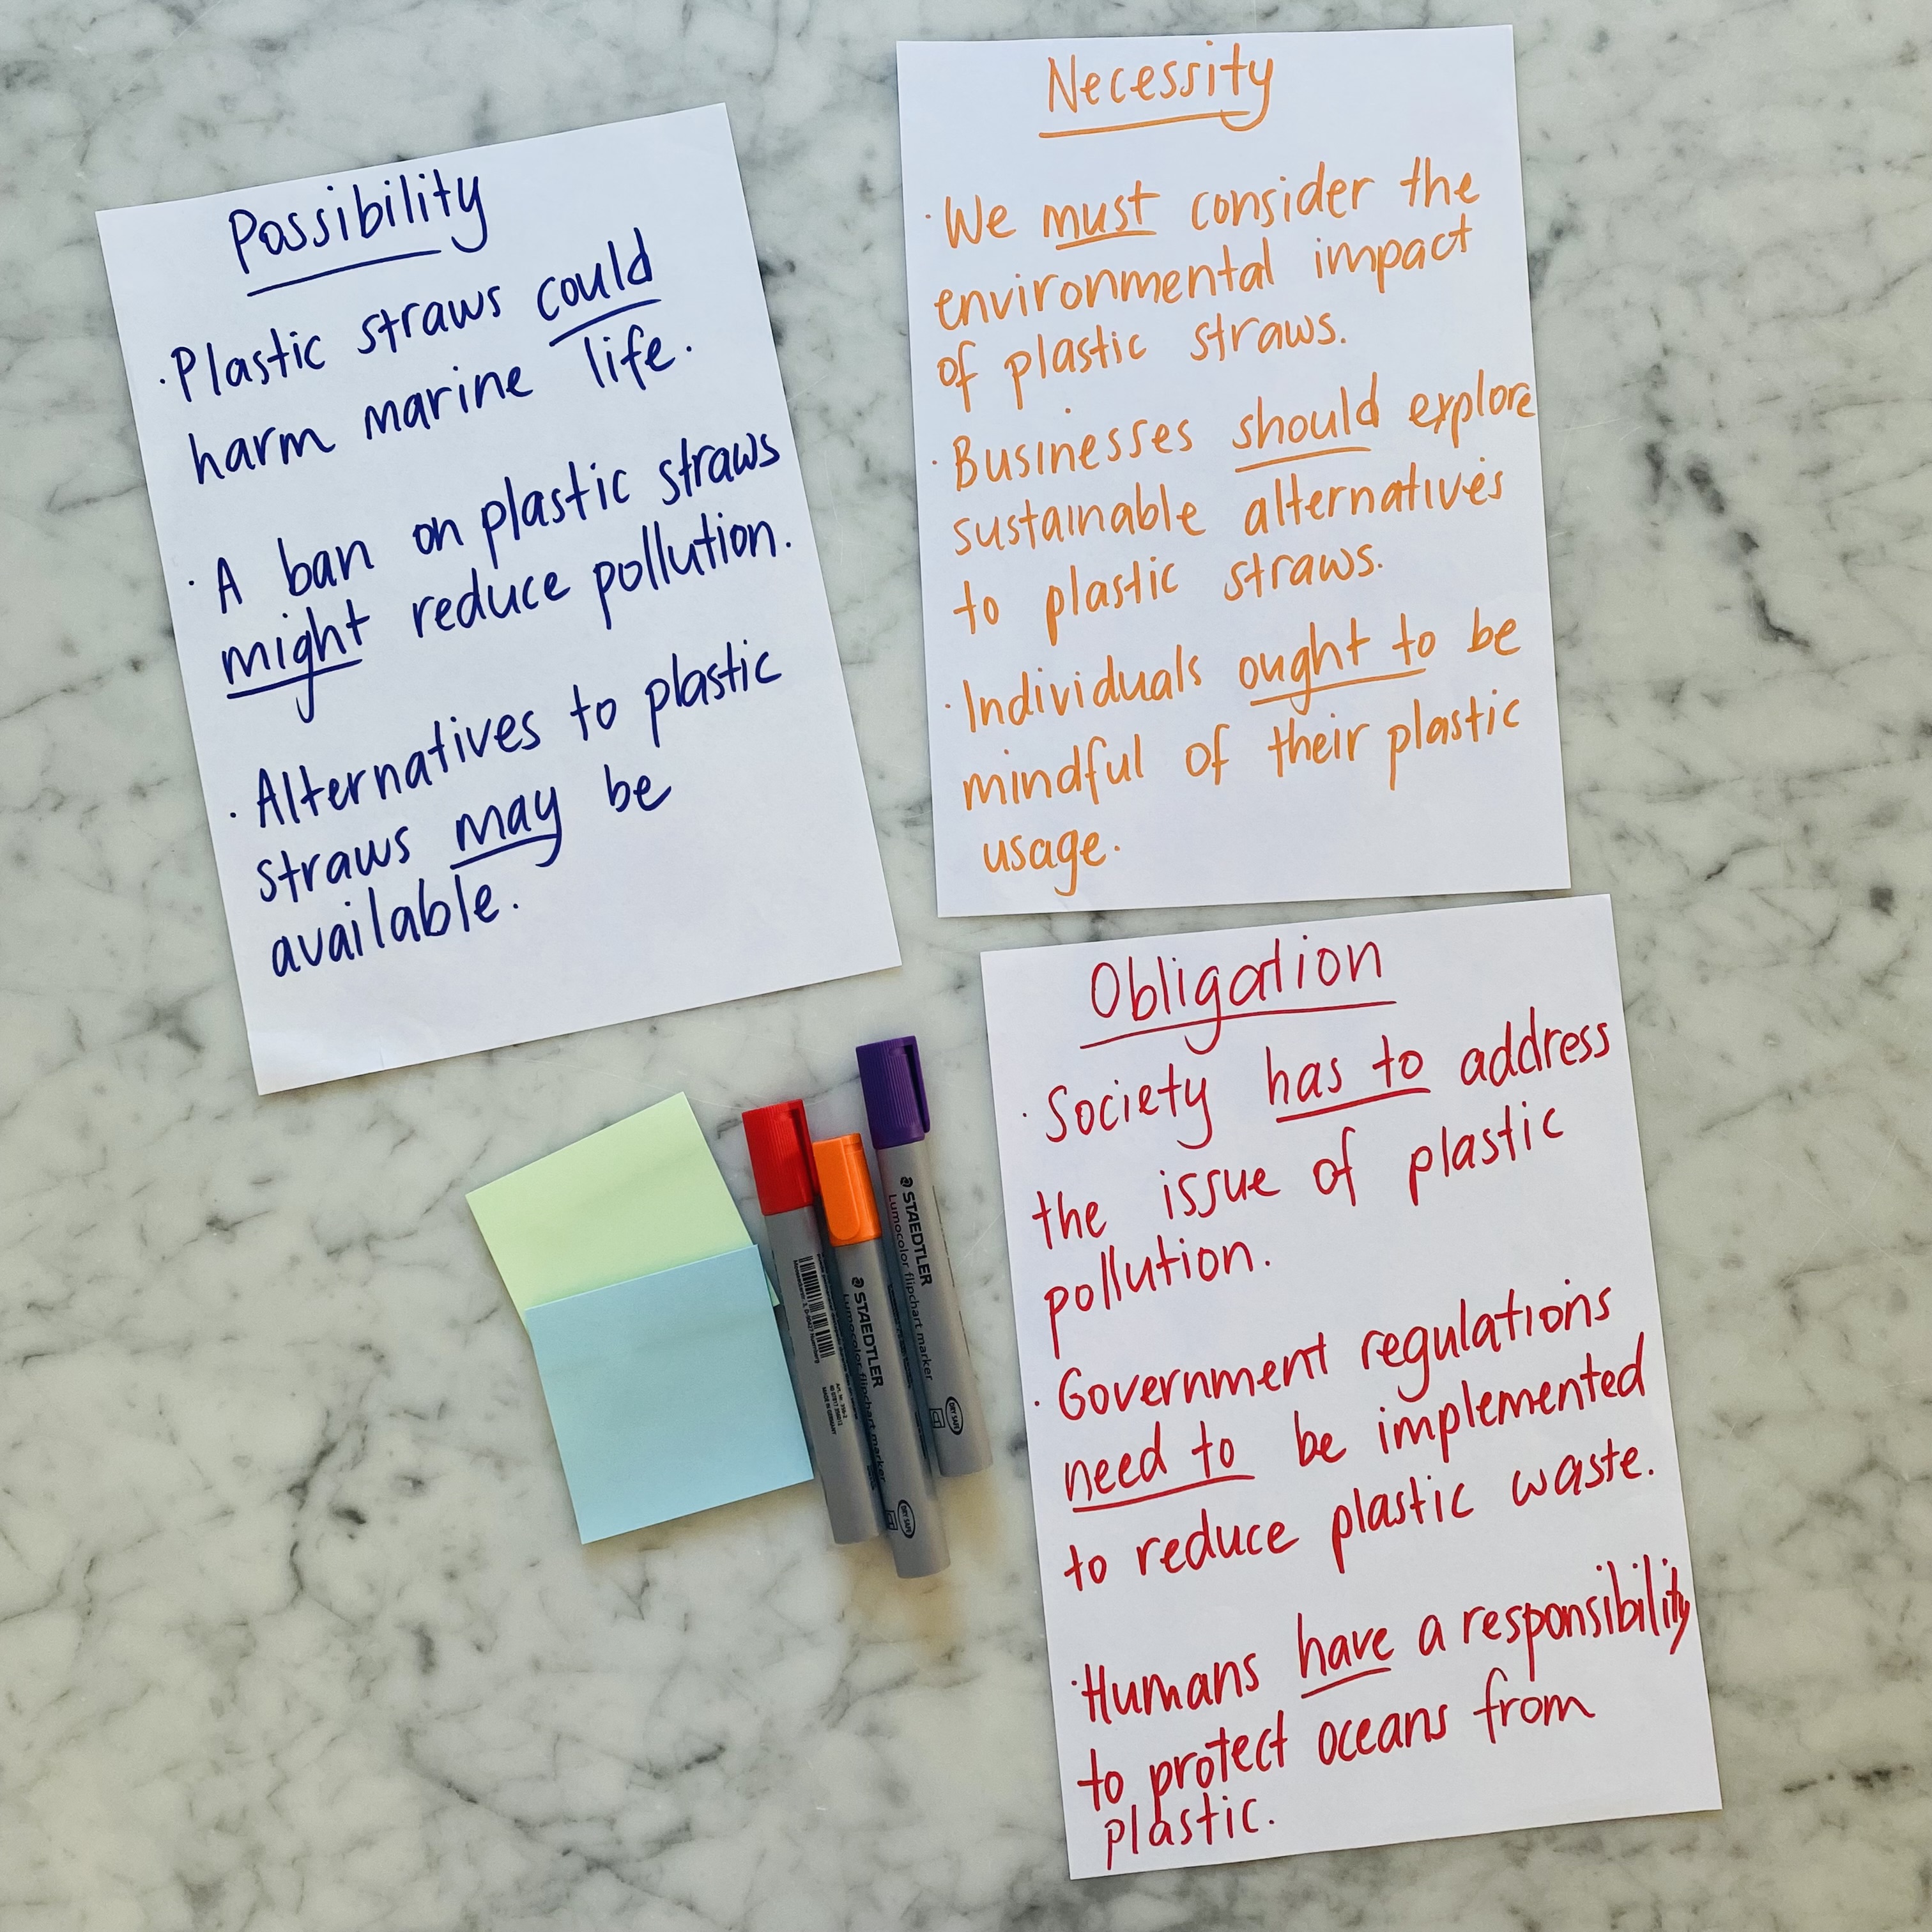 Possibility
· Plastic straws could
harm marine life.
· A ban on plastic straws
might reduce pollution.
· Alternatives to plastic
straws may be
available.
Necessity
· We must consider the
environmental impact
of plastic straws.
· Businesses should explore
sustainable alternatives
to plastic straws.
· Individuals ought to be
mindful of their plastic
usage.
Obligation
· Society has to address
the issue of plastic
pollution.
· Government regulations
need to be implemented
to reduce plastic waste.
· Humans have a responsibility
to protect oceans from
plastic.
STAEDTLER
Lumocolor flipchart marker
DRY SAFE
STAEDTLER
Lumocolor flipchart marker
DRY SAFE
MADE IN GERMANY